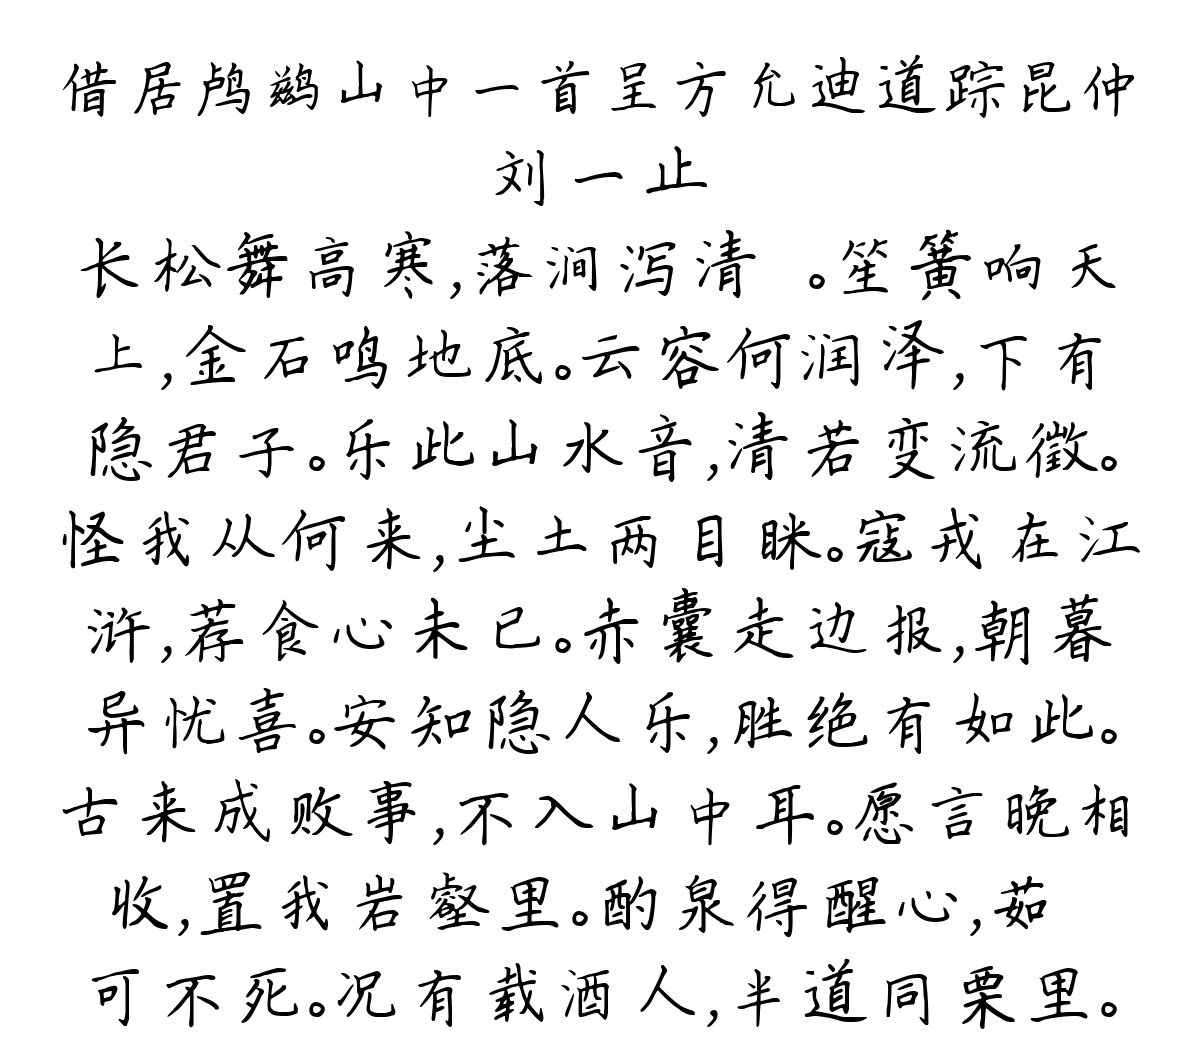 借居鸬鹚山中一首呈方允迪道踪昆仲
刘一止
长松舞高寒,落涧泻清 。笙簧响天
上,金石鸣地底。云容何润泽,下有
隐君子。乐此山水音,清若变流徵。
怪我从何来,尘土两目眯。寇戎在江
浒,荐食心未已。赤囊走边报,朝暮
异忧喜。安知隐人乐,胜绝有如此。
古来成败事,不入山中耳。愿言晚相
收,置我岩壑里。酌泉得醒心,茹
可不死。况有载酒人,半道同栗里。